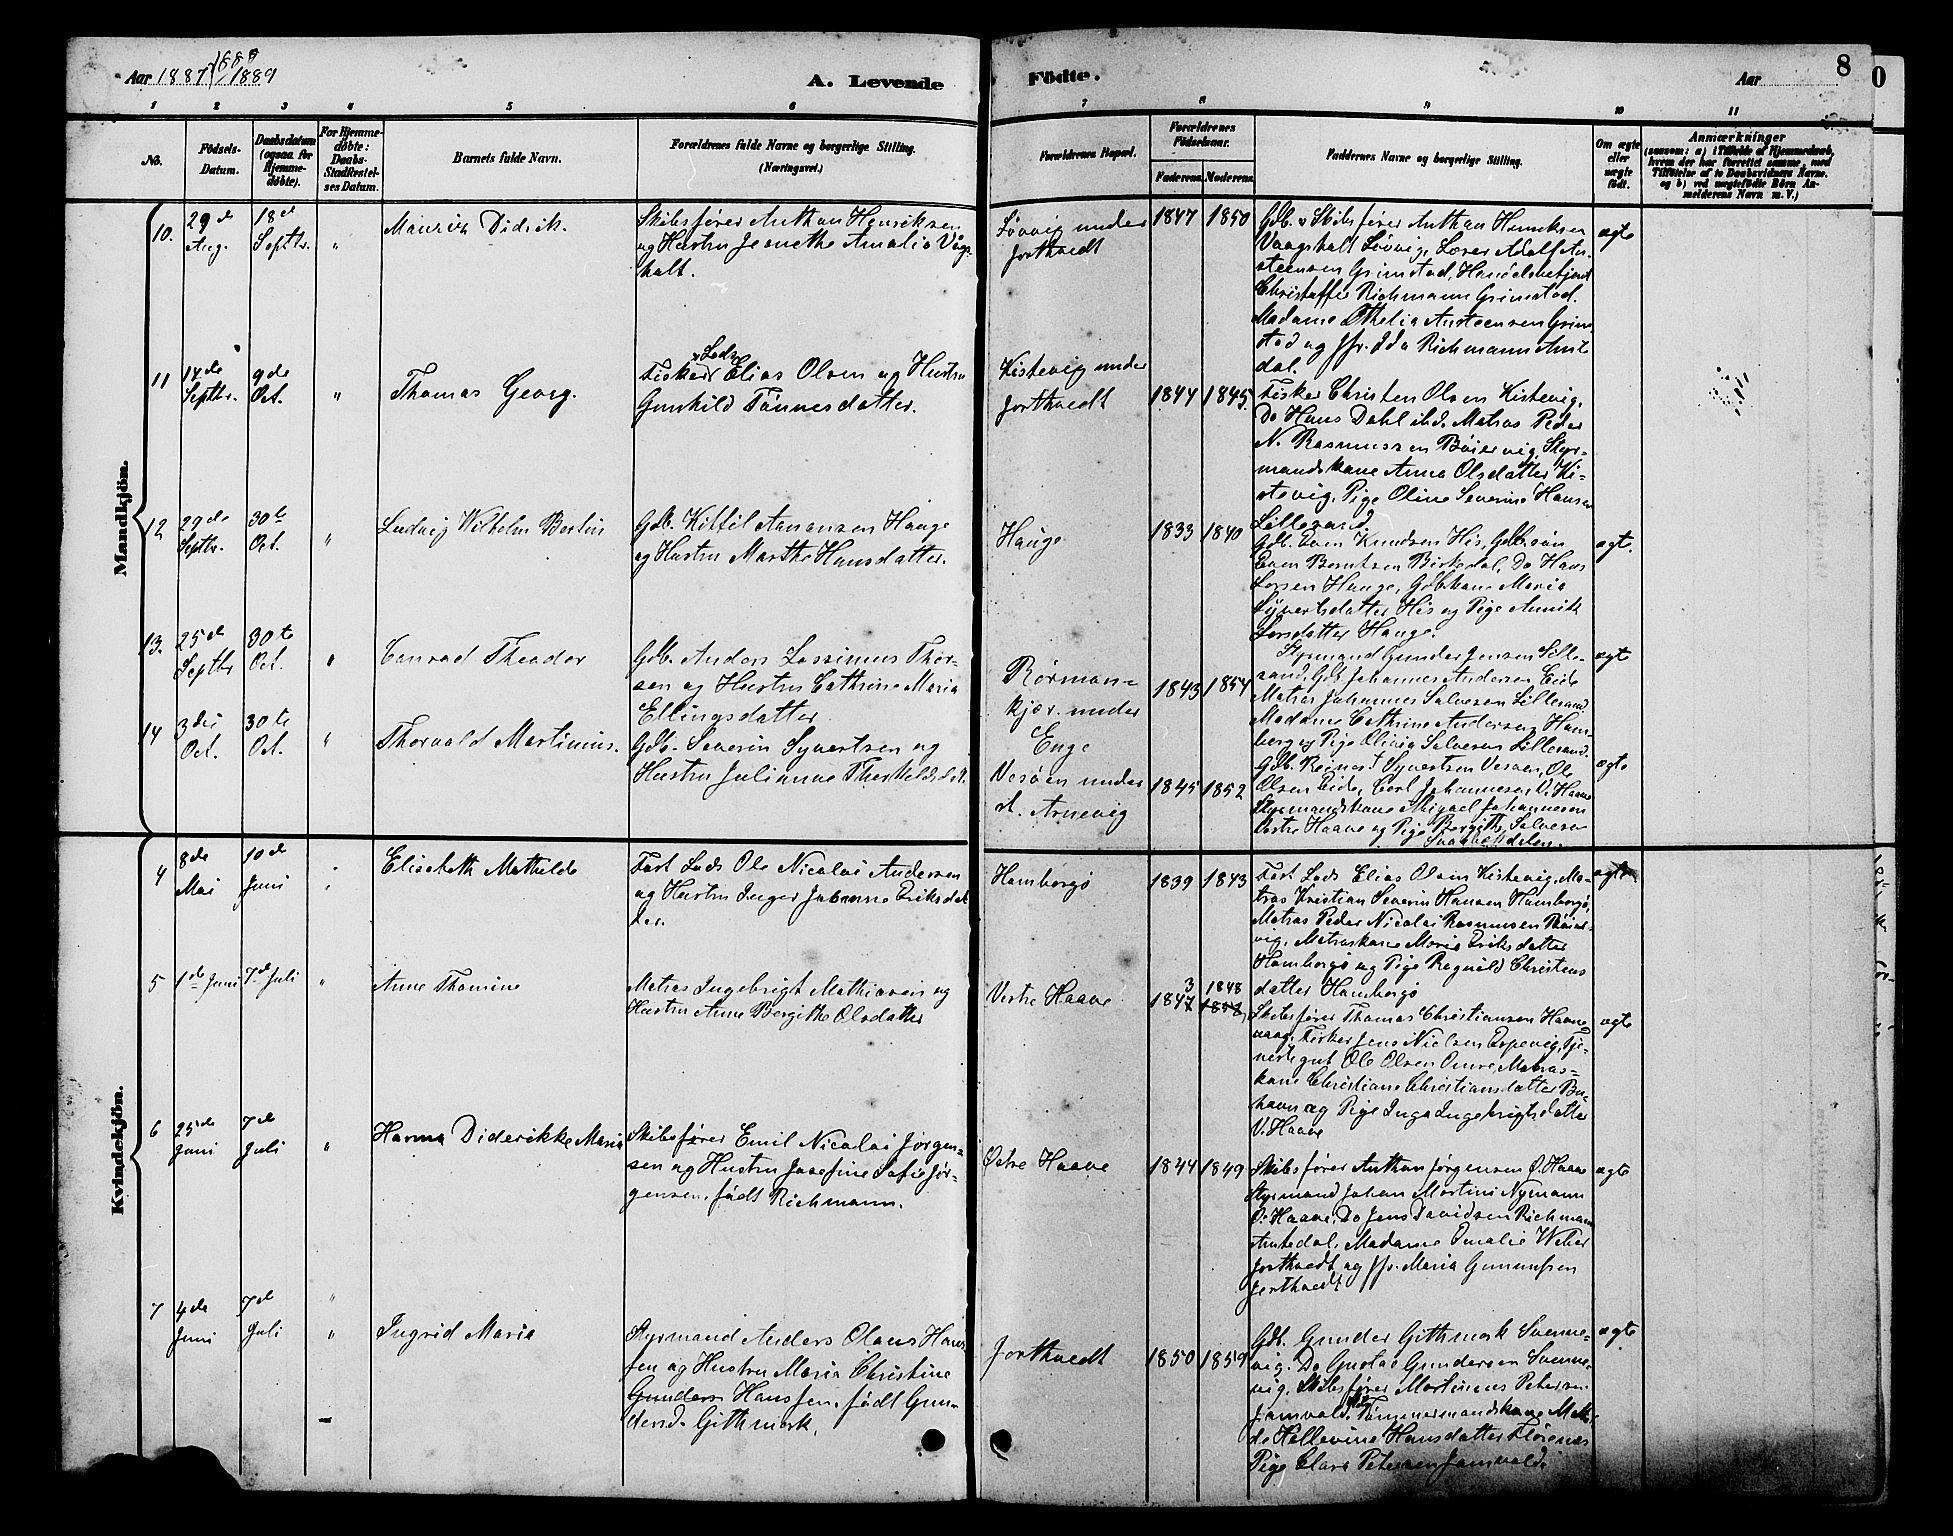 Aar 1887/1888/1889
A. Levende
Födte.
Aar
8
1 2 3 4 5 6 7 8 9 10 11
No.
Födsels-
Datum.
Daabsdatum
(ogsaa for
Hjemme-
døbte).
For Hjemme-
døbte:
Daabs-
Stadfestel-
ses Datum.
Barnets fulde Navn.
Forældrenes fulde Navne og borgerlige Stilling.
(Næringsvei.)
Forældrenes Bopæl.
Forældrenes
Födselsaar.
Faderens. Moderens.
Faddernes Navne og borgerlige Stilling.
Om ægte
eller
uægte
født.
Anmærkninger
(saasom: a) i Tilfælde af Hjemmedaab,
hvem der har forrettet samme, med
Tilføielse af to Daabsvidners Navne.
og b) ved uægtefødte Börn An-
melderens Navn m. V.)
Mandkjön.
10. 29de Aug. 18de Septbr. " Mauritz Didrik.
Skibsfører Anthon Henriksen
og Hustru Jeanethe Amalia Vågs-
halt.
Løvvig under
Jorthvedt
1847 1850
Gdb. & Skibsfører Anthon Henriksen
Vaagshalt Løvvig, Lærer Adolf Au-
steensen Grimstad, Handelsbetjent
Christoffer Richmann Grimstad.
Madame Othelia Austeensen Grim
stad og Jfr. Ida Richmann Amt
dal.
ægte
11 14de Septbr. 9de Oct. " Thomas Georg.
Fisker & Lods Elias Olsen og Hustru
Gunhild Tönnesdatter.
Kistevig under
Jorthvedt
1844 1845
Fisker Christen Olsen Kistevig,
Do Hans Dahl ibd. Matros Peder
N. Rasmussen Bøiervig, Styr-
mandskone Anna Olsdatter Ki-
stevig, Pige Oline Severine Hansen
Lillesand.
12 29de Septbr. 30te Oct. " Ludvig Vilhelm Bertin
Gdb. Kittil Aanonsen Hauge
og Hustru Marthe Hansdatter.
Hauge
1833 1840
Gdb. Even Knudsen His, Gdb.søn
Even Berntsen Birkedal, Do Hans
Larsen Hauge, Gdbkone Maria
Syvertsdatter His og Pige Annik
Larsdatter Hauge.
ægte.
13. 25de Septbr 30te Oct. " Conrad Theodor
Gdb. Anders Lassinius Thor-
sen og Hustru Cathrine Maria
Ellingsdatter
Rørmon-
kjær. under
Enge
1843 1854
Styrmand Gunder Jensen Lille-
sand, Gdb Johannes Andersen Eide
Matros Johannes Salvesen Lillesand.
Madame Cathrine Andersen Ham-
berg og Pige Olivia Salvesen Lillesand.
ægte
14 3die Oct. 30te Oct. " Thorvald Martinius.
Gdb. Severin Syvertsen og
Hustru Julianne Therkeldsdat.
Vesøen under
d. Arnevig
1845 1852
Gdb. Reinert Syvertsen Vesøen, Ole
Olsen Eide, Carl Johannesen V. Haave
Styrmandskone Abigael Johannesen
Vestre Haave og Pige Bergithe Salvesen
ægte
Kvindekjön.
4 8de Mai 10de Juni " Elisabeth Mathilde
Fast Lods Ole Nicolai Andersen
og Hustru Inger Johanne Eriksdat-
ter.
Homborgø
1839 1843
Fast Lods Elias Olsen Kistevig, Ma-
tros Kristian Severin Hansen Homborgø,
Matros Peder Nicolai Rasmussen Bøier-
vig, Matroskone Maria Eriksdatter
Homborgø og Pige Regnild Christens
datter Homborgø
ægte
5 1de Juni 7de Juli " Anne Thomine
Matros Ingebrigt Mathiasen og
Hustru Anne Bergithe Olsdatter
Vestre Haave
3
1847 1848
Skibsfører Thomas Christiansen Haave
vaag, Fisker Jens Nielsen Espevig, Tje-
nestegut Ole Olsen Omre, Matros-
kone Christiane Christiansdatter Bu-
havn og Pige Inga Ingebrigtsdatter
V. Haave
ægte
6 25de Juni 7de Juli " Hanna Diderikke Maria
Skibsfører Emil Nicolai Jørgen-
sen og Hustru Josefine Sofie Jør-
gensen, født Richmann.
Østre Haave
1844 1849
Skibsfører Anthon Jørgensen Ø. Haave
Styrmand Johan Martini Nymann
Ø. Haave, Do Jens Davidsen Richmann
Amtedal, Madame Emalie Weber
Jorthvedt og Jfr. Maria Gunnufsen
Jorthvedt
ægte
7 4de Juni 7de Juli " Ingrid Marie
Styrmand Anders Olaus Hans
sen og Hustru Maria Christine
Gunders Hanssen, født Gun-
dersd. Githmark.
Jorthvedt
1850 1859
Gdb. Gunder Githmark Svenne-
vig. Do Gustav Gundersen Svenne-
vig. Skibsfører Martinus Petersen
Jomvold, Tømmermandskone Mat
de Hellevine Hansdatter Florenæs
Pige Clara Petersen Jomvold.
ægte